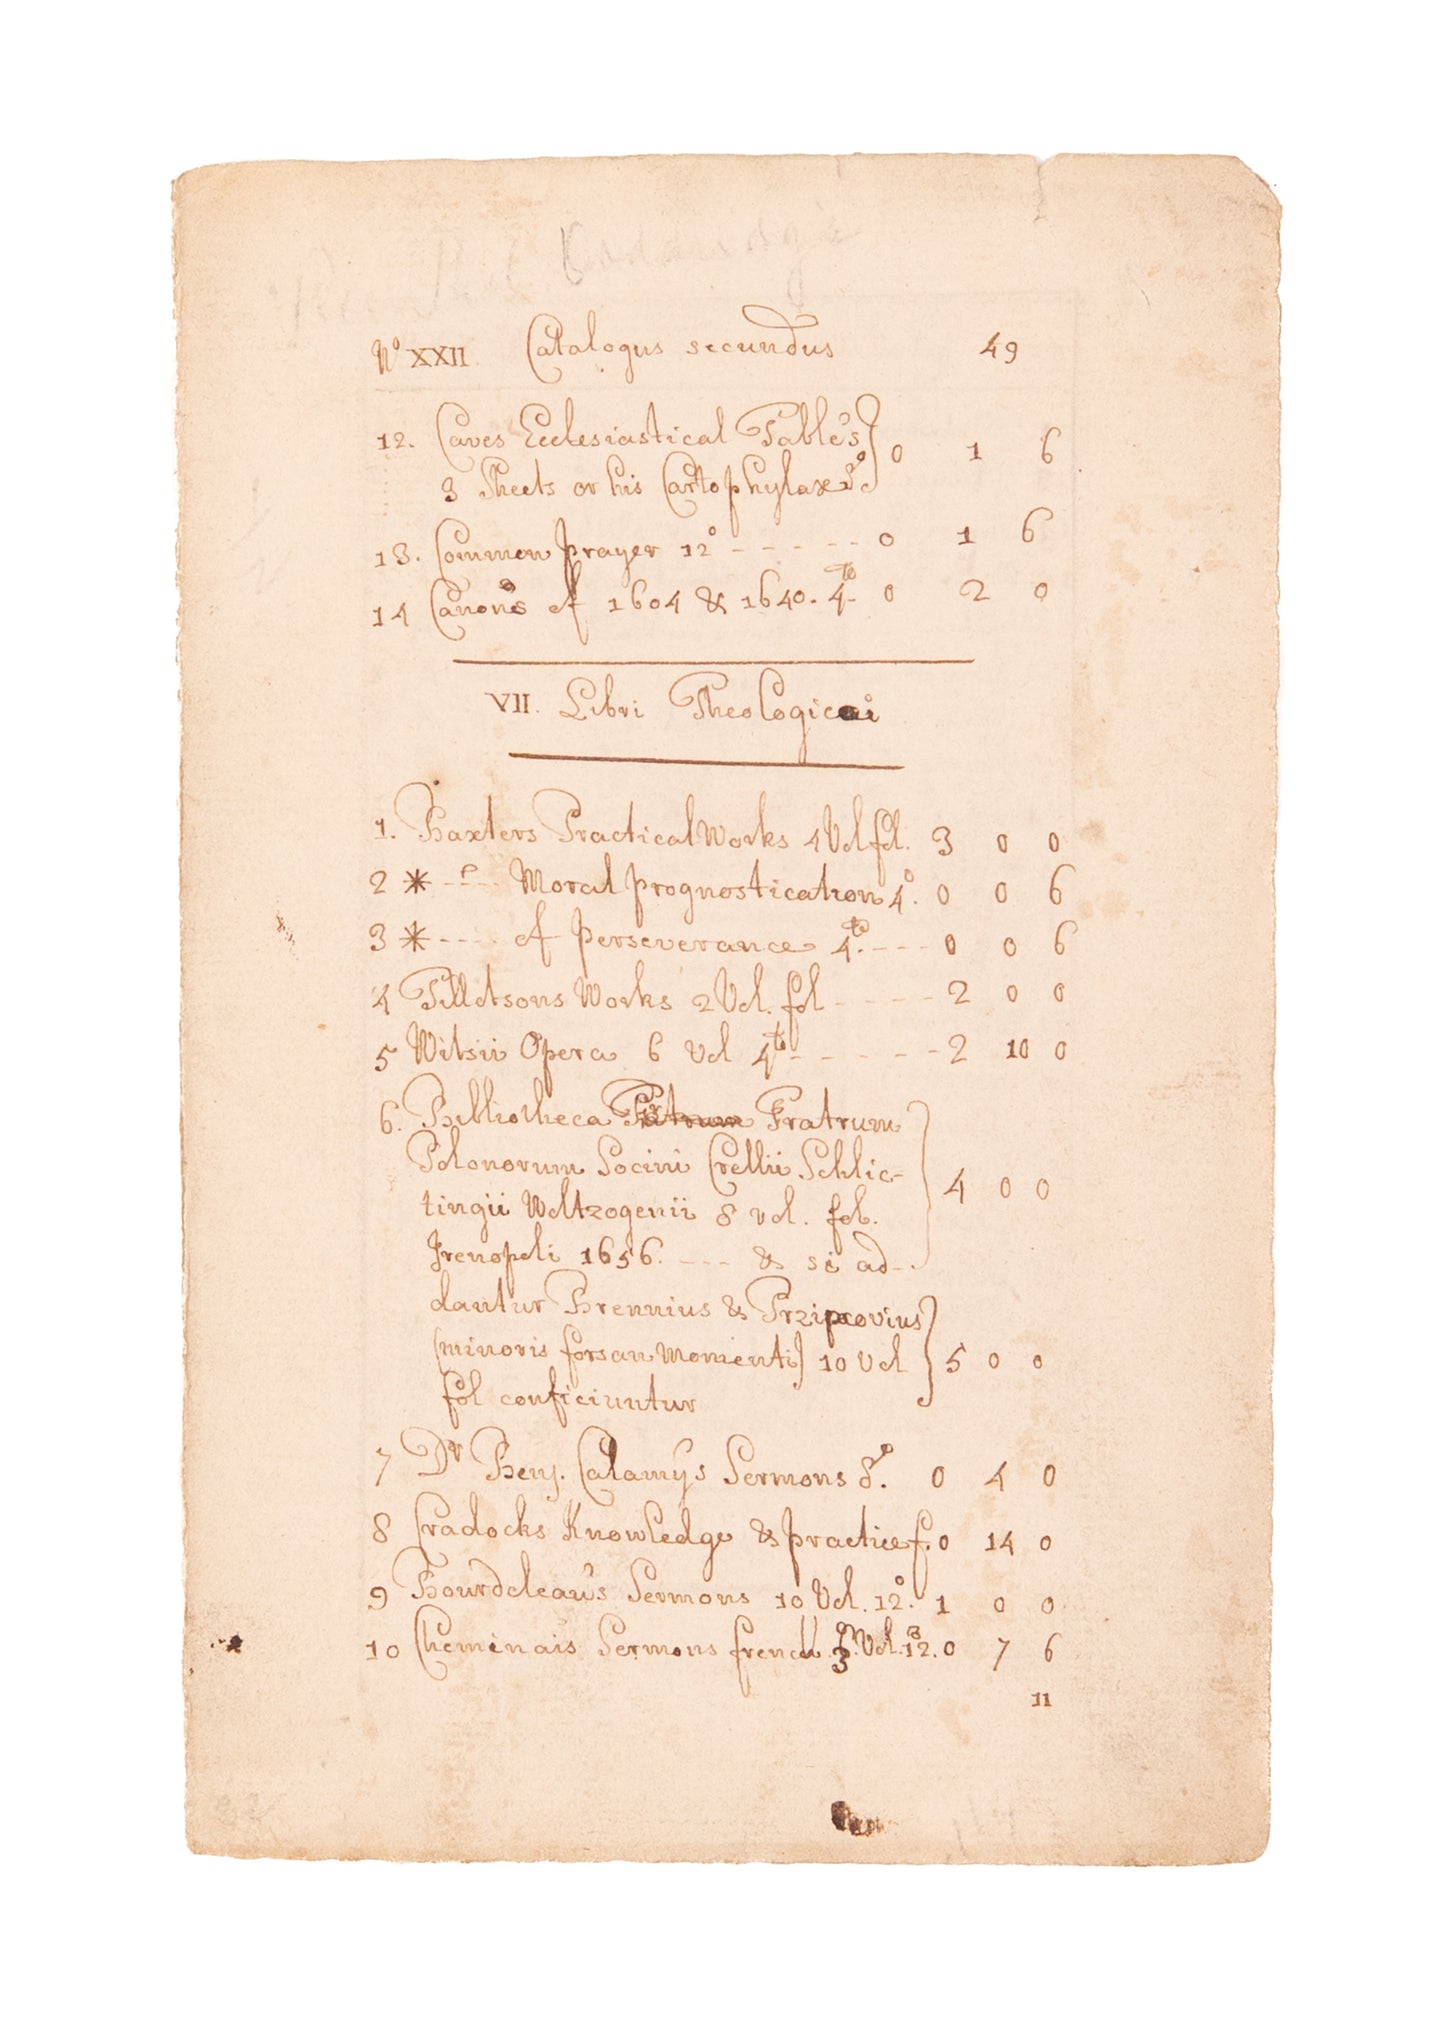 No XXII. Catalogus secundus 49
12. Caves Ecclesiastical Tables
3 Sheets or his Cartophylax 8o } 0 1 6
13. Common prayer 12o - - - - - 0 1 6
14 Canons of 1604 & 1640. 4to 0 2 0
VII. Libri Theologici
1. Baxters Practical Works 4 Vol fol. 3 0 0
2 * - - - Moral prognostication 4o. 0 0 6
3 * - - - - of perseverance 4to. - - - 0 0 6
4 Tillotsons Works 2 Vol. fol - - - - - 2 0 0
5 Witsii Opera 6 Vol 4to - - - - - - 2 10 0
6. Bibliotheca Fratrum
Polonorum Socini Crellii Schlic-
tingii Woltzogenii 8 vol. fol. } 4 0 0
Irenopoli 1656. - - - & si ad-
dantur Brennius & Przipcovius
(minoris forsan momenti) 10 Vol } 5 0 0
fol conficiuntur
7 Dr Benj. Calamys Sermons 8o. 0 4 0
8 Cradocks Knowledge & practice f. 0 14 0
9 Bourdeleaus Sermons 10 Vol. 12o. 1 0 0
10 Cheminais Sermons french 3 Vol. 12. 0 7 6
11